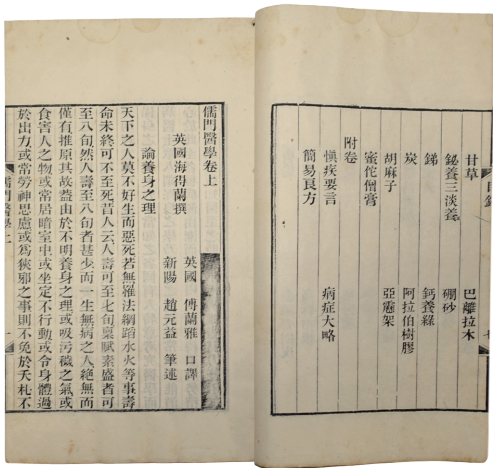 甘草 巴離拉木
鉍養三淡養 硼砂
銻 鈣養綠
炭 阿拉伯樹膠
胡麻子
蜜佗僧膏
附卷
愼疾要言 病症大略
簡易良方
儒門醫學卷上
英國海得蘭撰
英國 傅蘭雅 口譯
新陽 趙元益 筆述
論養身之理
天下之人莫不好生而惡死若無罹法網蹈水火等事壽
命未終可不至死昔人云人壽可至七旬稟賦素盛者可
至八旬然人壽至八旬者甚少而一生無病之人絶無而
僅有推原其故蓋由於不明養身之理或吸污穢之氣或
食害人之物或常居暗室中或坐定不行動或令身體過
於出力或常勞神思慮或爲狹邪之事則不免於夭札不